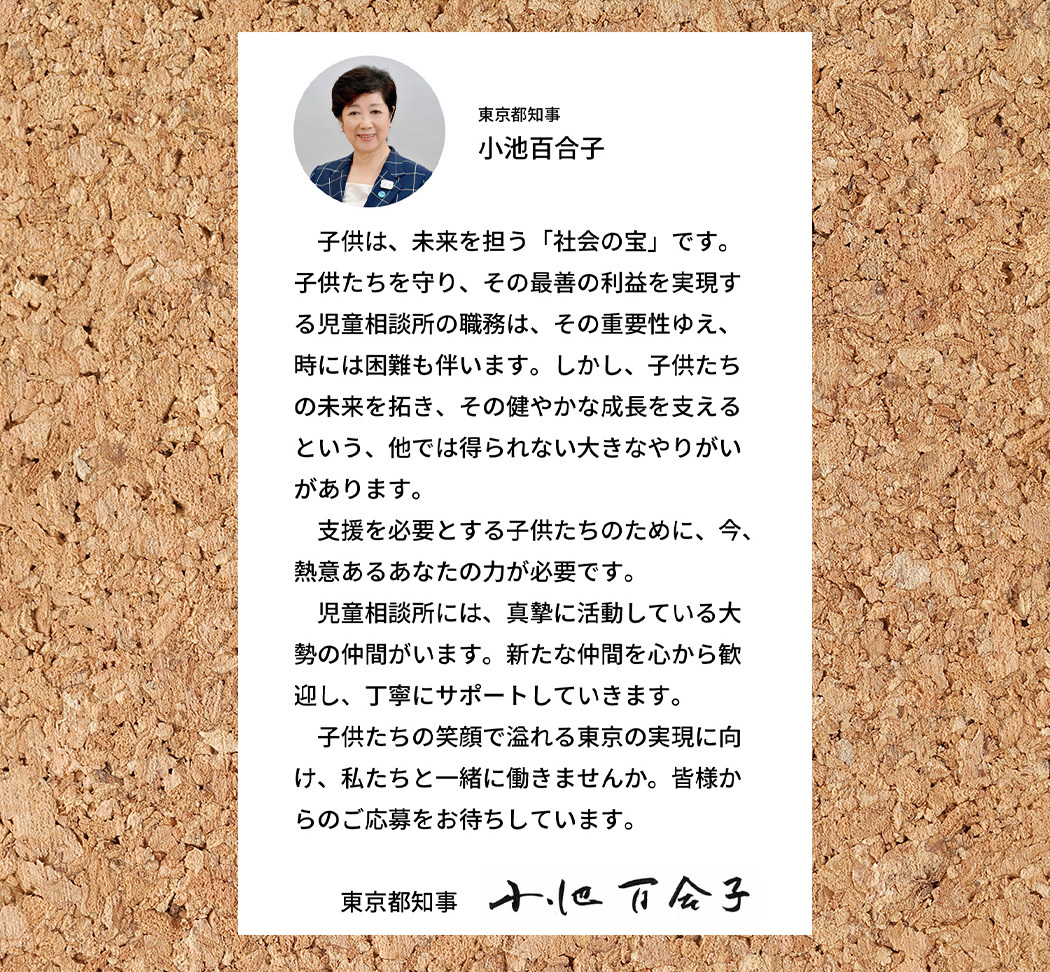 東京都知事
小池百合子
子供は、未来を担う「社会の宝」です。
子供たちを守り、その最善の利益を実現す
る児童相談所の職務は、その重要性ゆえ、
時には困難も伴います。しかし、子供たち
の未来を拓き、その健やかな成長を支える
という、他では得られない大きなやりがい
があります。
支援を必要とする子供たちのために、今、
熱意あるあなたの力が必要です。
児童相談所には、真摯に活動している大
勢の仲間がいます。新たな仲間を心から歓
迎し、丁寧にサポートしていきます。
子供たちの笑顔で溢れる東京の実現に向
け、私たちと一緒に働きませんか。皆様か
らのご応募をお待ちしています。
東京都知事 小池百合子